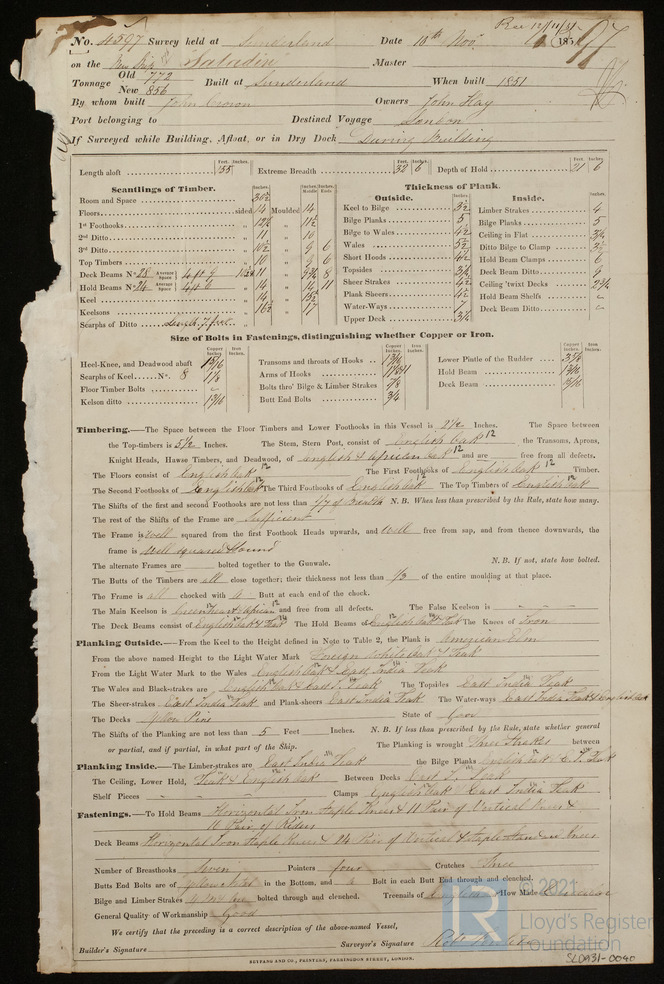 Rec 12/11/51
No. 4597 Survey held at Sunderland Date 10th Novr 1851
on the New Ship Saladin Master
Tonnage Old 772 New 856 Built at Sunderland When built 1851
By whom built John Crown Owners John Hay
Port belonging to Destined Voyage London
If Surveyed while Building, Afloat, or in Dry Dock During Building
Length aloft 135 Extreme Breadth 32 6 Depth of Hold 21 6
Scantlings of Timber.
Thickness of Plank.
Outside. Inside.
Room and Space
Floors sided 14 Moulded 14
1st Foothooks
2nd Ditto 11 10
3rd Ditto 10½ 9 6
Top Timbers 10 9 6
Deck Beams No 28 Average Space 4 ft 9
Hold Beams No 24 Average Space 4 ft 6
Keel 14
Keelsons 16½ 17
Scarphs of Ditto Length 7 feet
Keel to Bilge 3½
Bilge Planks 5
Bilge to Wales 4½
Wales 5½
Short Hoods 4½
Topsides
Sheer Strakes 4½
Plank Sheers 4½
Water-Ways 7
Upper Deck 3½
Limber Strakes 4
Bilge Planks 5
Ceiling in Flat
Ditto Bilge to Clamp
Hold Beam Clamps 6
Deck Beam Ditto 9
Ceiling 'twixt Decks
Hold Beam Shelfs
Deck Beam Ditto
Size of Bolts in Fastenings, distinguishing whether Copper or Iron.
Heel-Knee, and Deadwood abaft
Scarphs of Keel No. 8 1⅛
Floor Timber Bolts
Kelson ditto 1 3/16
Transoms and throats of Hooks
Arms of Hooks
Bolts thro' Bilge & Limber Strakes 7/8
Butt End Bolts 3/4
Lower Pintle of the Rudder
Hold Beam
Deck Beam
Timbering.—The Space between the Floor Timbers and Lower Foothooks in this Vessel is 2½ Inches. The Space between
the Top-timbers is 5½ Inches. The Stem, Stern Post, consist of English Oak 12 the Transoms, Aprons,
Knight Heads, Hawse Timbers, and Deadwood, of English & African Oak 12 and are free from all defects.
The Floors consist of English Oak 12 The First Foothooks of English Oak 12 Timber.
The Second Foothooks of English Oak 12 The Third Foothooks of English Oak 12 The Top Timbers of English Oak 12
The Shifts of the first and second Foothooks are not less than 1/7 of Breadth N. B. When less than prescribed by the Rule, state how many.
The rest of the Shifts of the Frame are Sufficient
The Frame is well squared from the first Foothook Heads upwards, and well free from sap, and from thence downwards, the
frame is Well squared & Sound
The alternate Frames are bolted together to the Gunwale. N. B. If not, state how bolted.
The Butts of the Timbers are all close together; their thickness not less than 1/3 of the entire moulding at that place.
The Frame is all chocked with a Butt at each end of the chock.
The Main Keelson is Greenheart & African 12 and free from all defects. The False Keelson is
The Deck Beams consist of English Oak & Teak The Hold Beams of English Oak & Teak The Knees of Iron
Planking Outside.—From the Keel to the Height defined in Note to Table 2, the Plank is American Elm
From the above named Height to the Light Water Mark Foreign White Oak & Teak
From the Light Water Mark to the Wales English Oak & East India Teak
The Wales and Black-strakes are English Oak & East I. Teak The Topsides East India Teak
The Sheer-strakes East India Teak and Plank-sheers East India Teak The Water-ways East India Teak & English Oak
The Decks Yellow Pine State of Good
The Shifts of the Planking are not less than 5 Feet Inches. N. B. If less than prescribed by the Rule, state whether general
or partial, and if partial, in what part of the Ship. The Planking is wrought Three Strakes between
Planking Inside.—The Limber-strakes are East India Teak the Bilge Planks English Oak & E. I. Teak
The Ceiling, Lower Hold, Teak & English Oak Between Decks East I. Teak
Shelf Pieces Clamps English Oak & East India Teak
Fastenings.—To Hold Beams Horizontal Iron Staple Knees & 11 Pair of Vertical Knees &
10 Pair of Riders
Deck Beams Horizontal Iron Staple Knees & 14 Pair of Vertical & Staple Standard Knees
Number of Breasthooks Seven Pointers four Crutches Three
Butts End Bolts are of Yellow Metal in the Bottom, and a Bolt in each Butt End through and clenched.
Bilge and Limber Strakes bolted through and clenched. Treenails of How Made
General Quality of Workmanship Good
We certify that the preceding is a correct description of the above-named Vessel,
Builder's Signature Surveyor's Signature
SEYFANG AND CO., PRINTERS, FARRINGDON STREET, LONDON.
SLD931-0040
LR © 2021
Lloyd's Register
Foundation